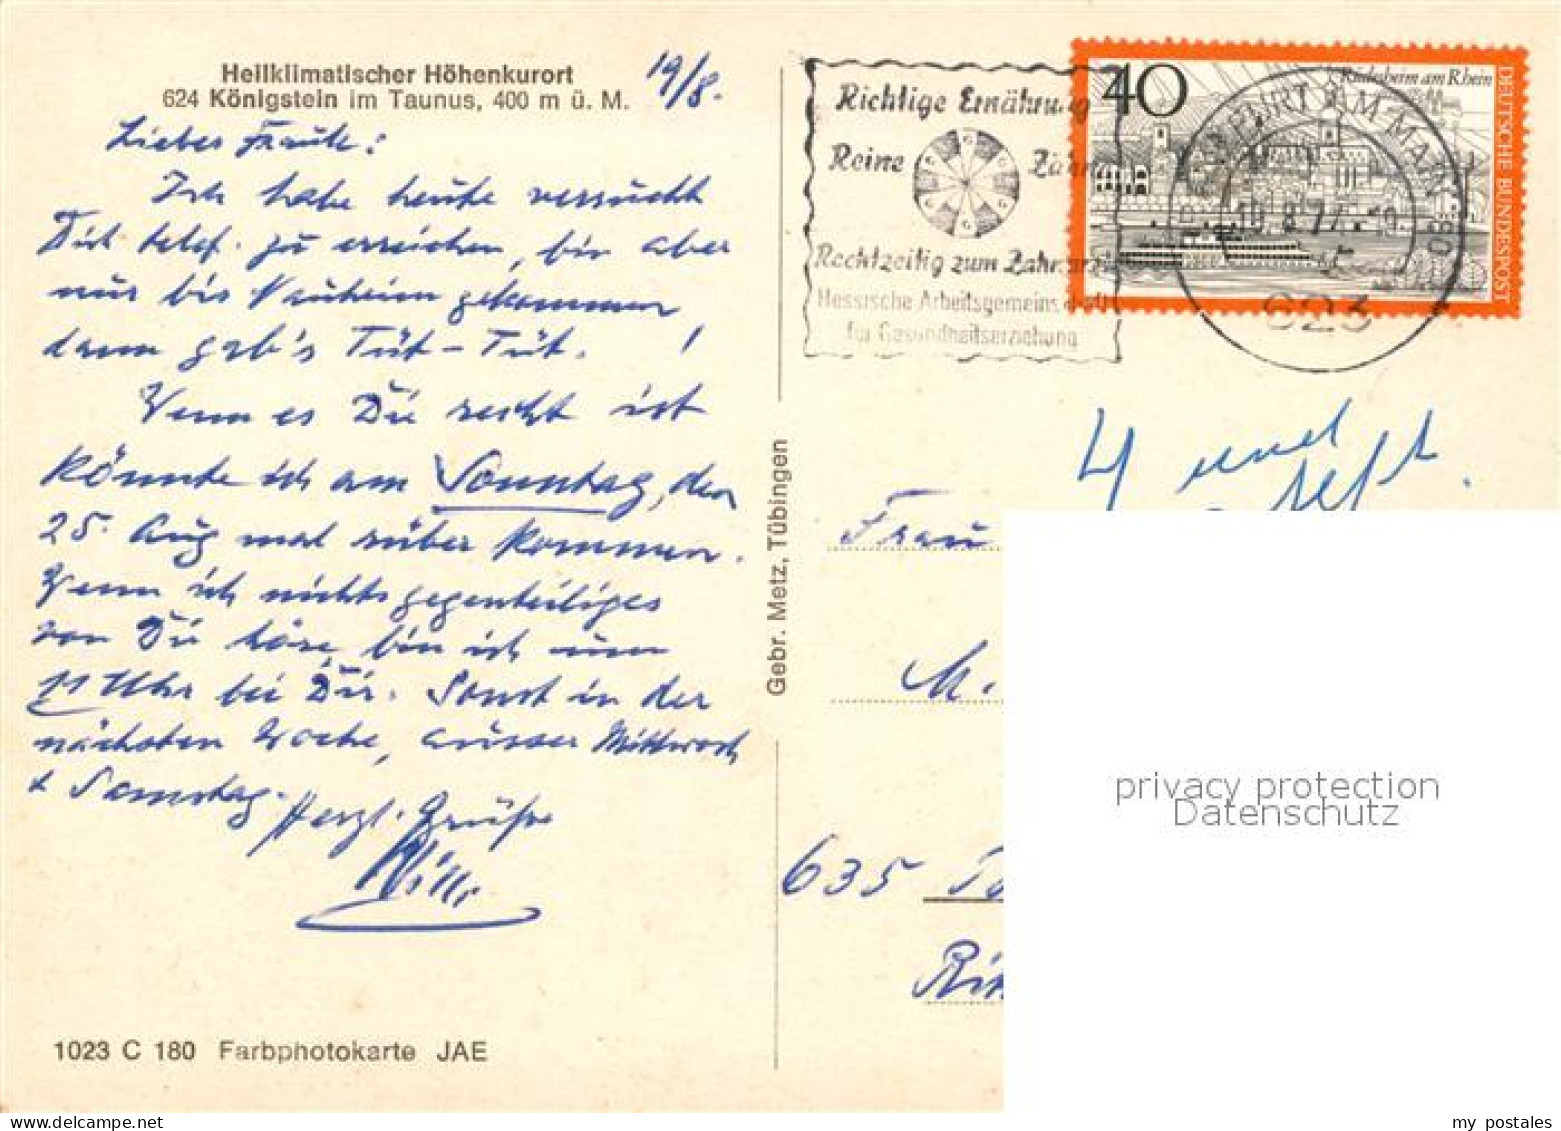 Heilklimatischer Höhenkurort
624 Königstein im Taunus, 400 m ü. M.
19/8.
Liebes Frauke!
Ich habe heute versucht
Dich telef. zu erreichen, bin aber
nur bis Nauheim gekommen
dann gab's Tüt-Tüt. !
Wenn es Dir recht ist
könnte ich am Sonntag, den
25. Aug mal rüber kommen.
Wenn ich nichts gegenteiliges
von Dir höre bin ich um
11 Uhr bei Dir. Sonst in der
nächsten Woche, ausser Mittwoch
+ Samstag.
Herzl. Grüße
Willi
1023 C 180 Farbphotokarte JAE
Gebr. Metz, Tübingen
Richtige Ernährung
Reine Zähne
Rechtzeitig zum Zahnarzt
Hessische Arbeitsgemeinschaft
für Gesundheitserziehung
40
Rüdesheim am Rhein
DEUTSCHE BUNDESPOST
FRANKFURT AM MAIN 80
19.8.74
623
4 und
Frau
M.
635
privacy protection
Datenschutz
my postales